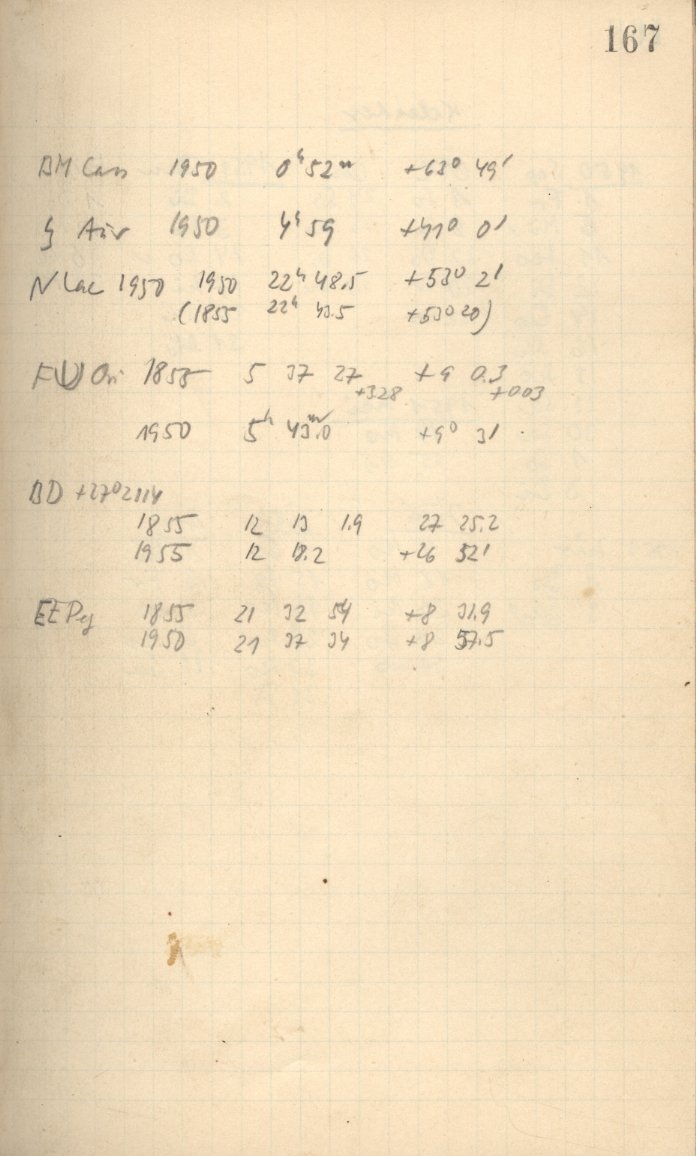 167
BM Cass 1950 0h 52m +63° 49'
ζ Aur 1950 4h 59 +41° 0'
N Lac 1950 1950 22h 48.5 +53° 2'
(1855 22h 43.5 +53° 20)
FU Ori 1855 5 37 27 +9 0.3
+328 +003
1950 5h 43m.0 +9° 3'
BD +27°2114
1855 12 13 1.9 27 25.2
1955 12 18.2 +26 52'
EE Peg 1855 21 32 54 +8 31.9
1950 21 37 34 +8 57.5